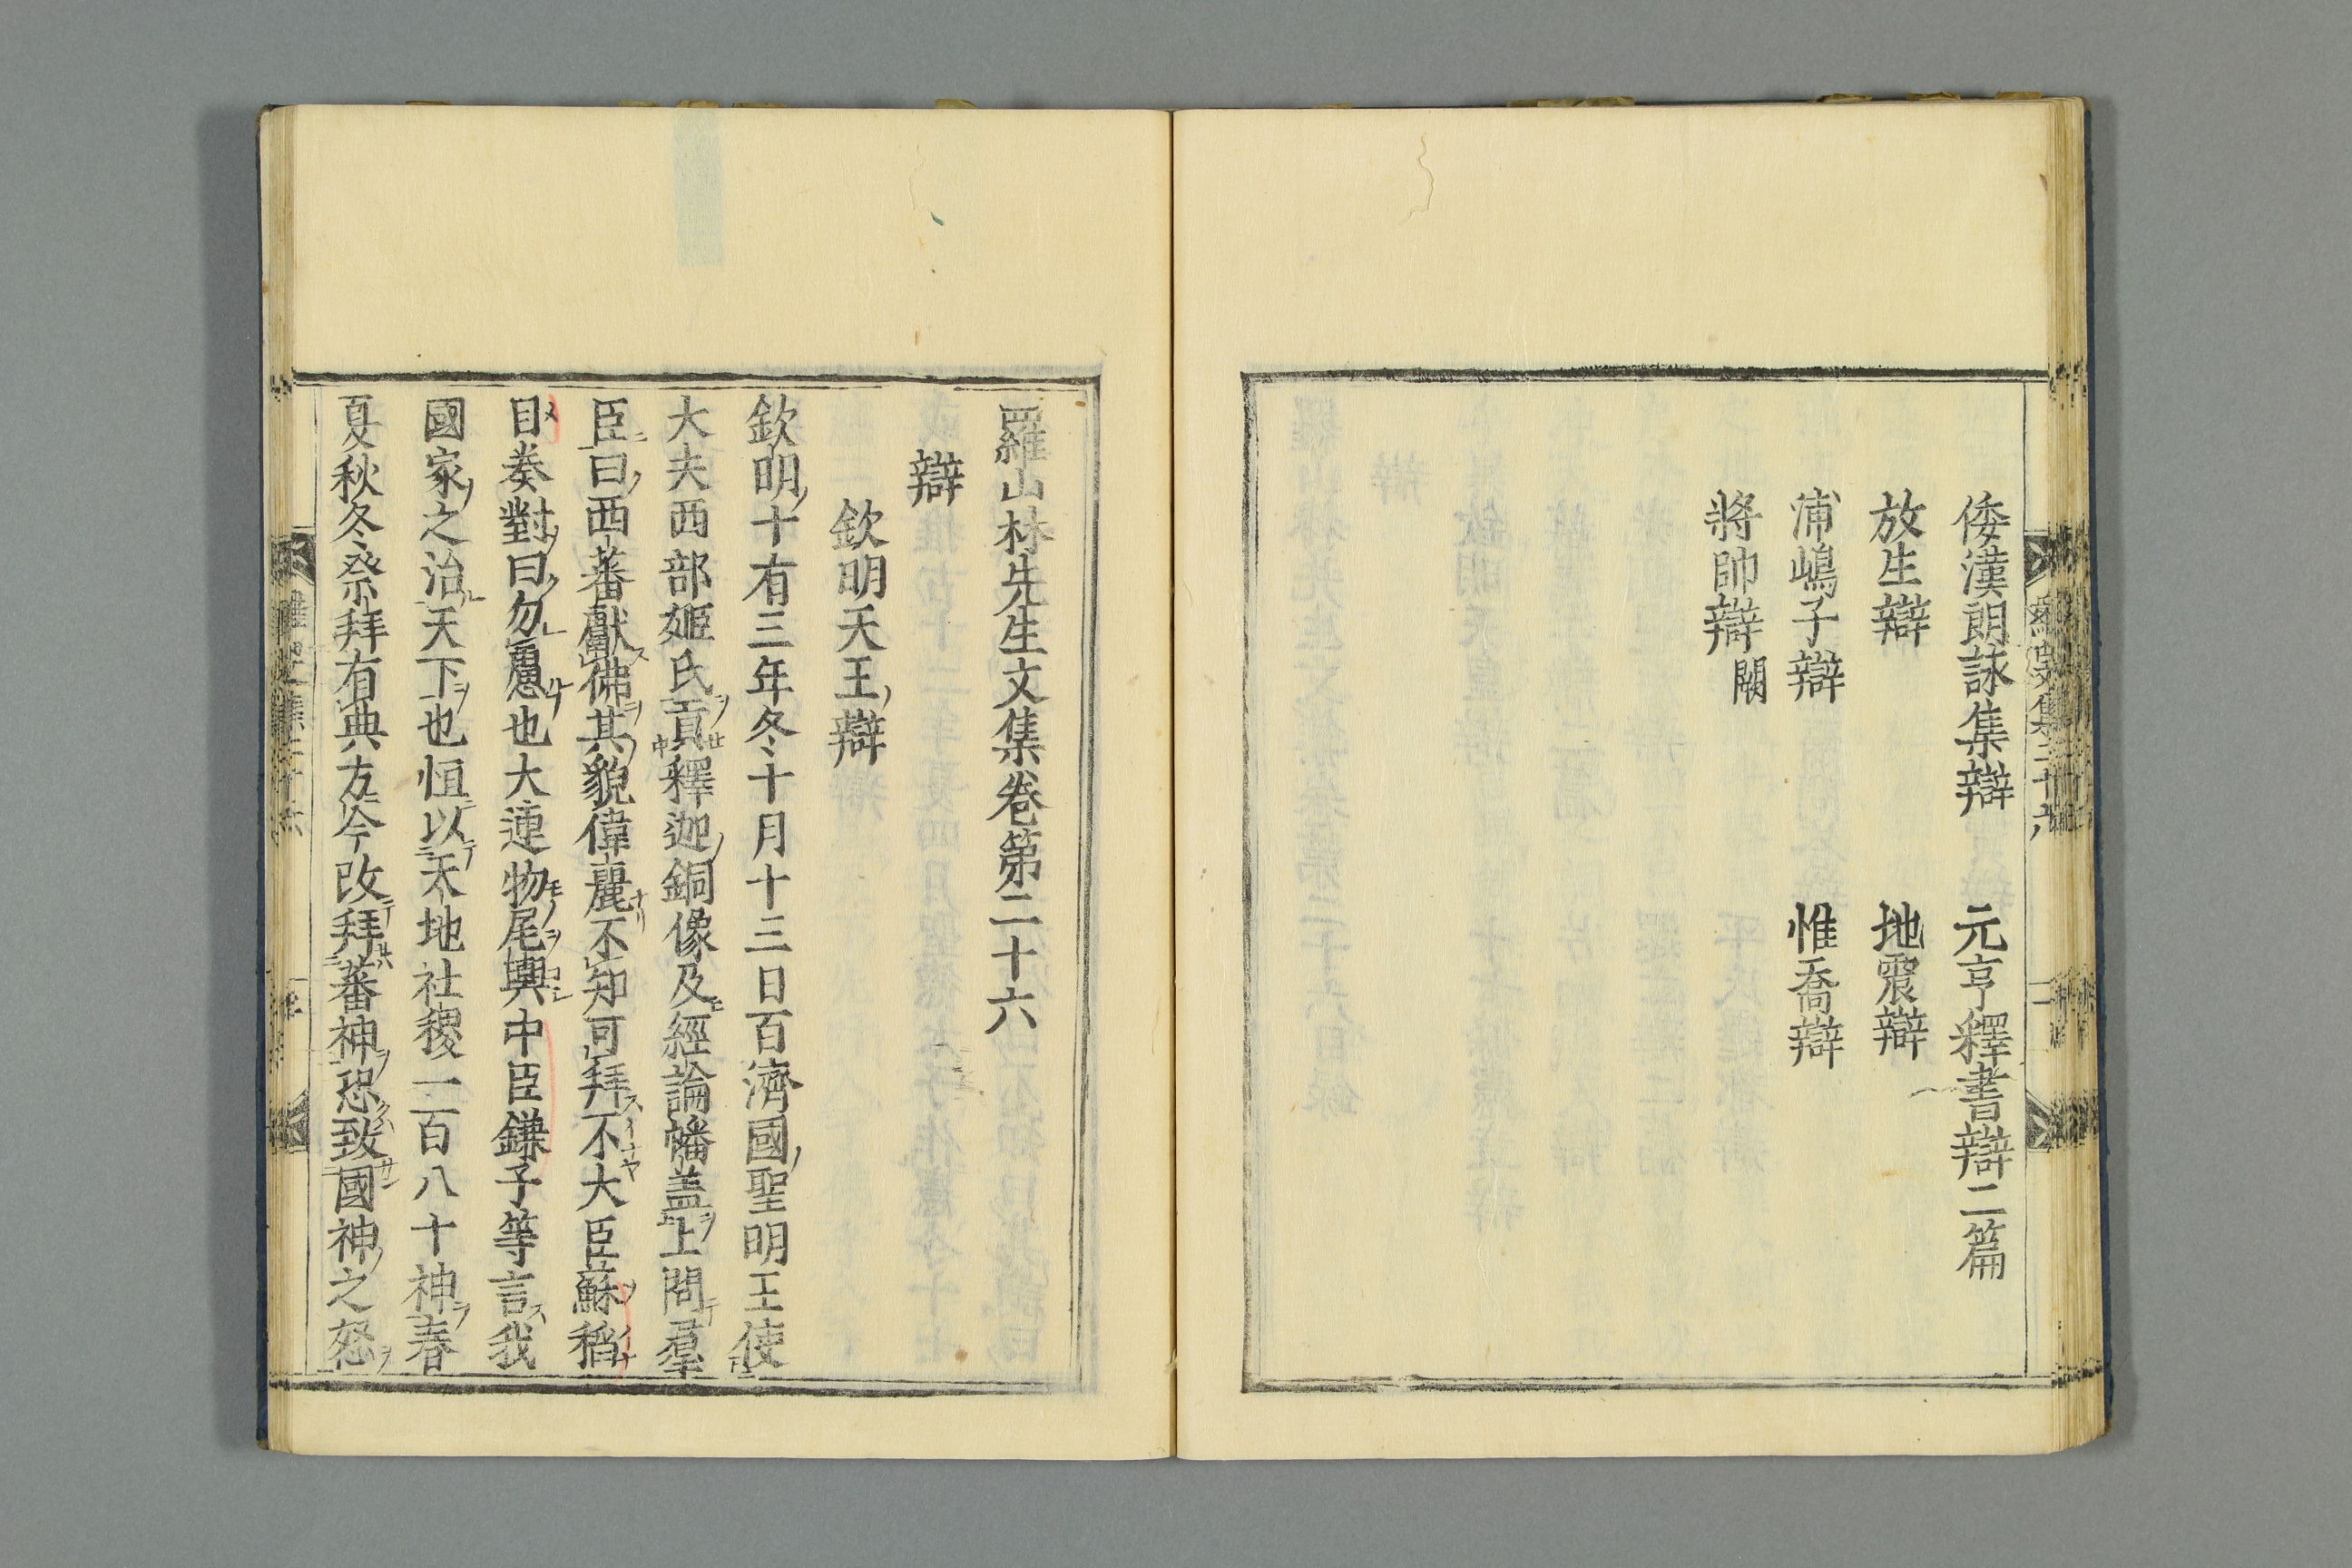 倭漢朗詠集辯　元亨釋書辯二篇
放生辯　地震辯
浦嶋子辯　惟喬辯
將帥辯闕
羅山林先生文集卷第二十六
辯
欽明天王辯
欽明十有三年冬十月十三日百濟國聖明王使
大夫西部姬氏貢釋迦銅像及經論幡盖上問羣
臣曰西蕃獻佛其貌偉麗不知可拜不大臣蘇稻
目奏對曰勿慮也大連物尾輿中臣鎌子等言我
國家之治天下也恒以天地社稷一百八十神春
夏秋冬祭拜有典方今改拜蕃神恐致國神之怒